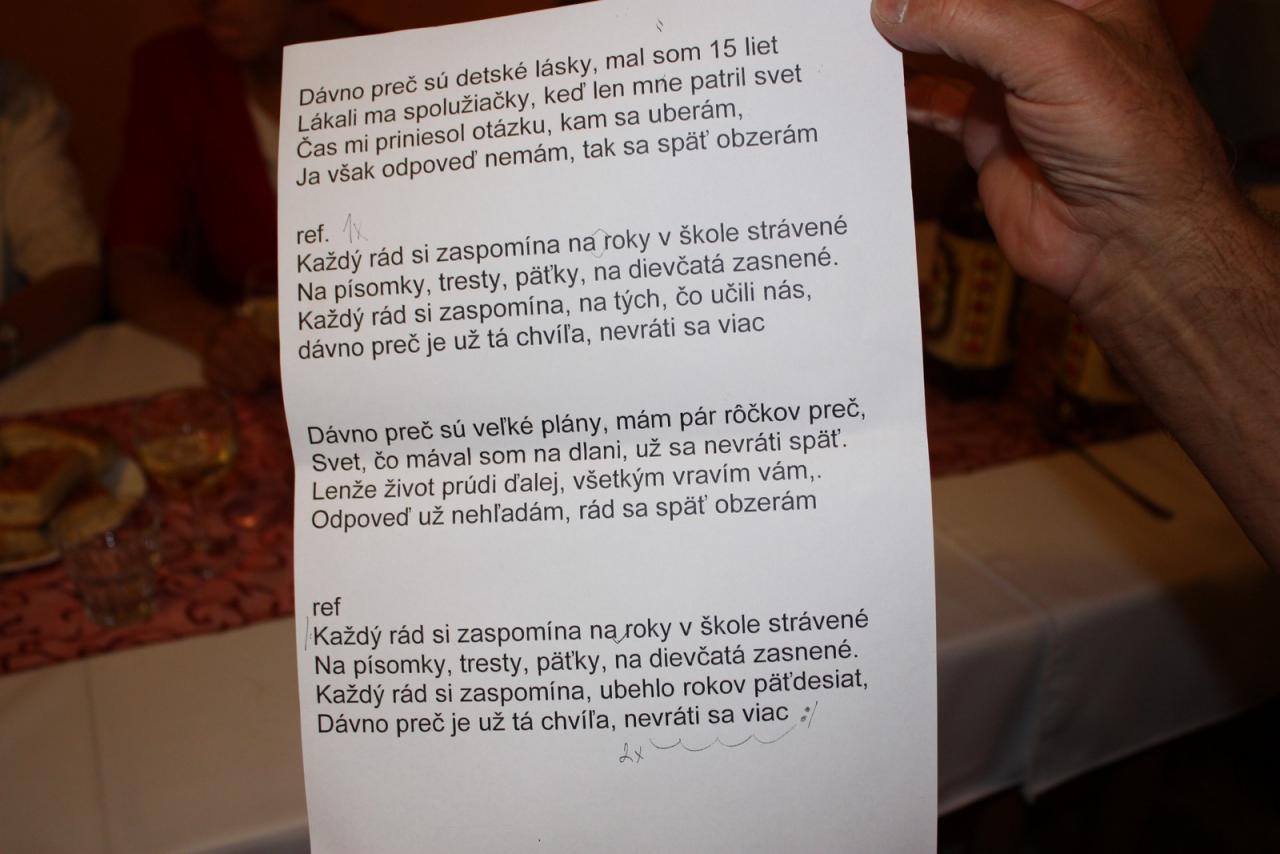 Dávno preč sú detské lásky, mal som 15 liet
Lákali ma spolužiačky, keď len mne patril svet
Čas mi priniesol otázku, kam sa uberám,
Ja však odpoveď nemám, tak sa späť obzerám
ref. 1x
Každý rád si zaspomína na roky v škole strávené
Na písomky, tresty, päťky, na dievčatá zasnené.
Každý rád si zaspomína, na tých, čo učili nás,
dávno preč je už tá chvíľa, nevráti sa viac
Dávno preč sú veľké plány, mám pár rôčkov preč,
Svet, čo mával som na dlani, už sa nevráti späť.
Lenže život prúdi ďalej, všetkým vravím vám,.
Odpoveď už nehľadám, rád sa späť obzerám
ref
Každý rád si zaspomína na roky v škole strávené
Na písomky, tresty, päťky, na dievčatá zasnené.
Každý rád si zaspomína, ubehlo rokov päťdesiat,
Dávno preč je už tá chvíľa, nevráti sa viac :/
2x